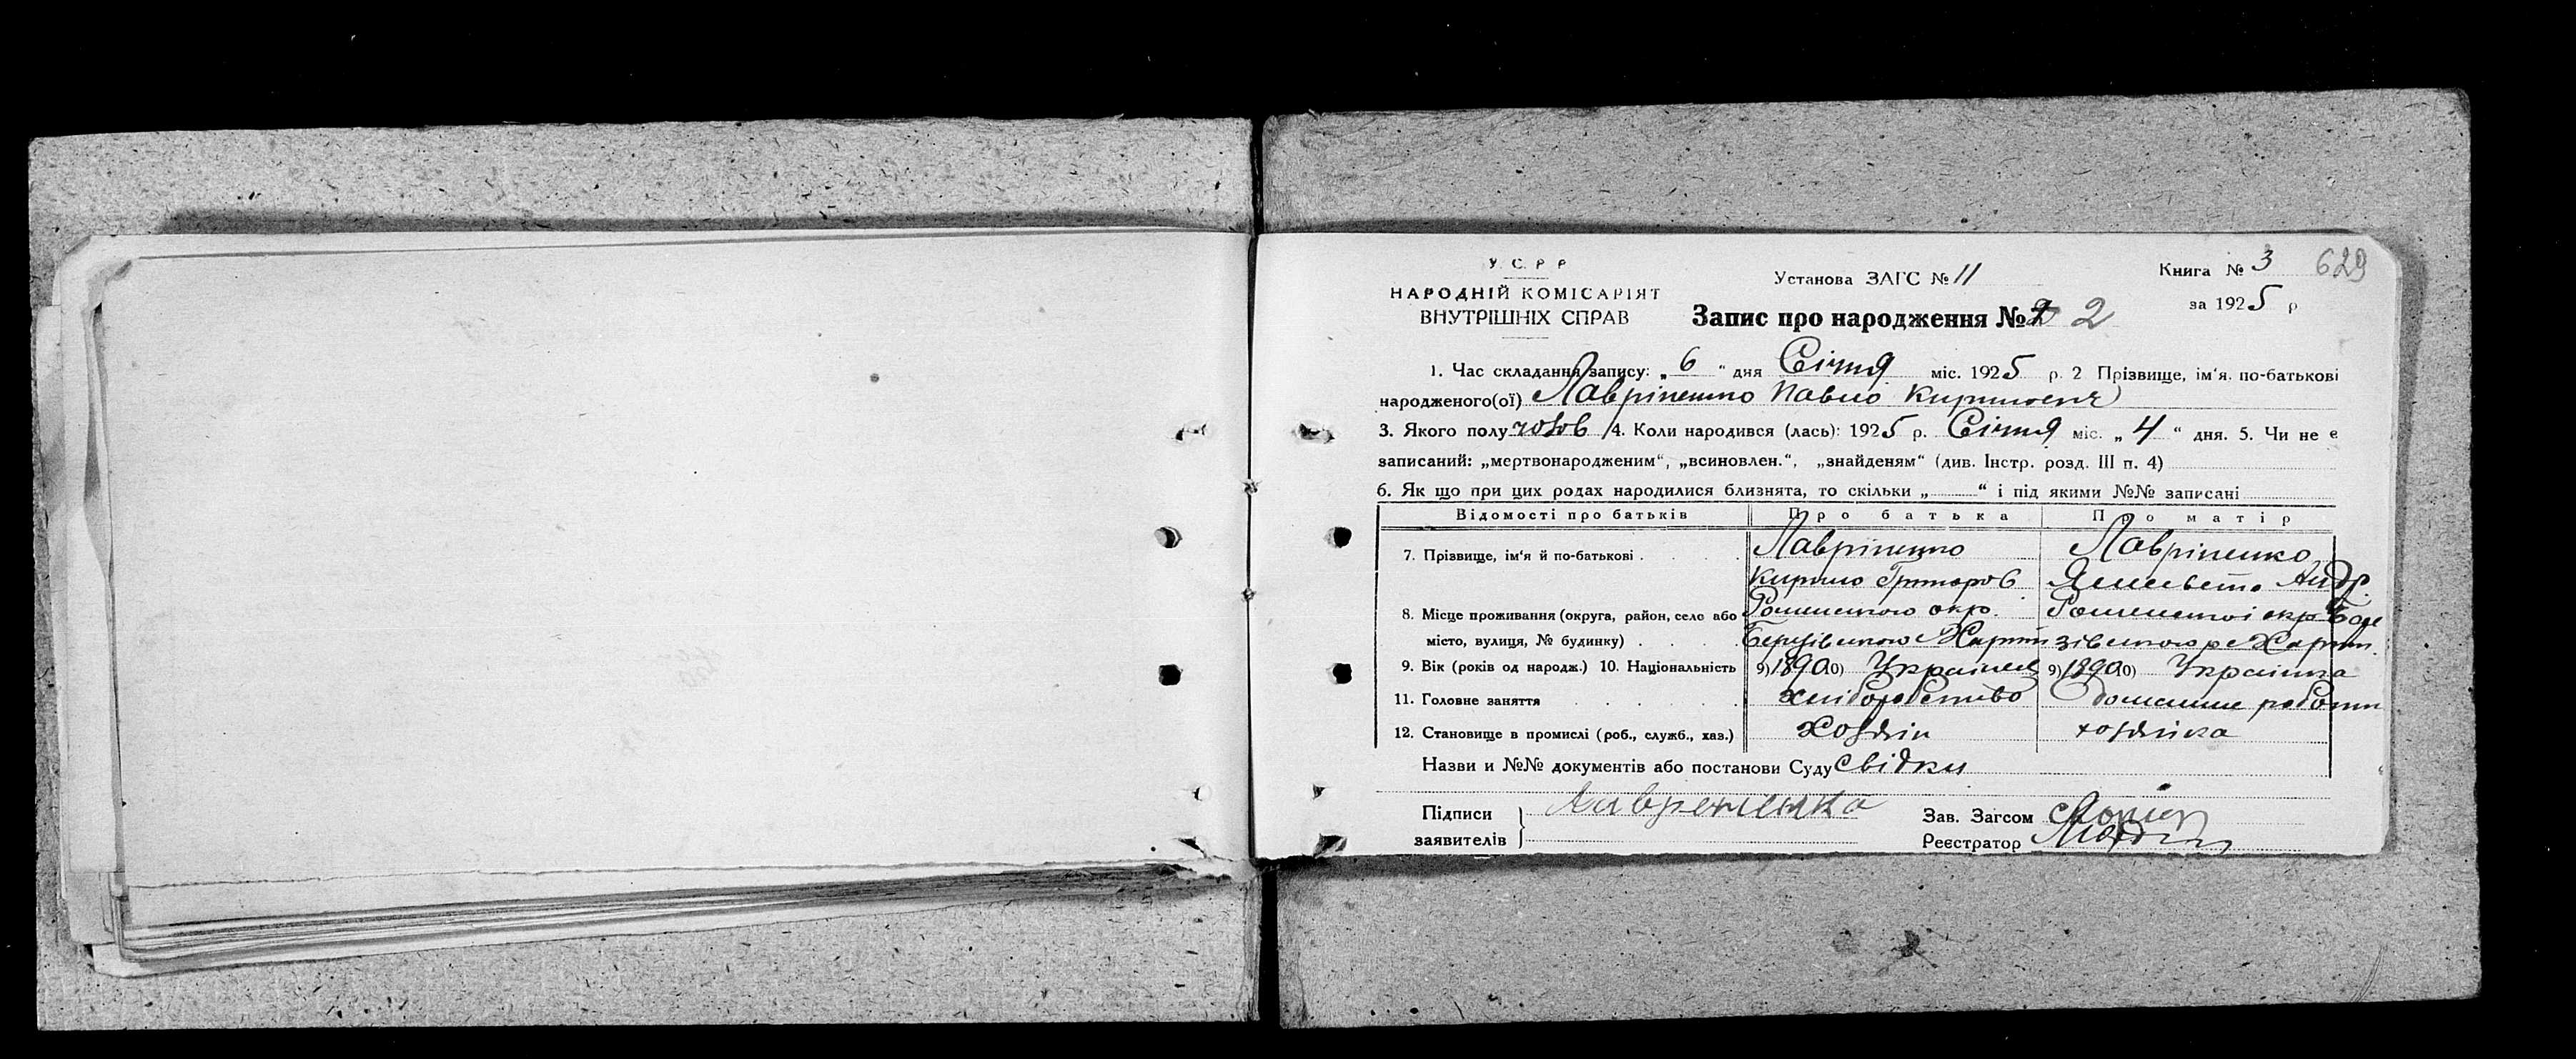 У. С. Р. Р.
НАРОДНІЙ КОМІСАРІЯТ
ВНУТРІШНІХ СПРАВ
Установа ЗАГС № 11
Книга № 3 629
за 1925 р
Запис про народження № 2
1. Час складання запису: „ 6 “ дня Січня міс. 1925 р. 2 Прізвище, ім‘я, по-батькові
народженого(ої) Лавріненко Павло
3. Якого полу чолов 4. Коли народився (лась): 1925 р. Січня міс. „ 4 “ дня. 5. Чи не є
записаний: „мертвонародженим“, „всиновлен.“, „знайденям“ (див. Інстр. розд. III п. 4)
6. Як що при цих родах народилися близнята, то скільки „ “ і під якими №№ записані
Відомості про батьків Про батька Про матір
7. Прізвище, ім‘я й по-батькові . . . Лавріненко Лавріненко
Кирило Григоров Андр.
8. Місце проживання (округа, район, село або Роменською окр. Роменської окр Бере
місто, вулиця, № будинку) . . . Березівською зівською
9. Вік (років од народж.) 10. Національність 9) 1890 10) Українец 9) 1890 10) Українка
11. Головне заняття . . . . . хліборобство домашне роботи
12. Становище в промислі (роб., служб., хаз.) хозяін хозяіка
Назви и №№ документів або постанови Суду свідки
Підписи
заявителів
Лаврененка
Зав. Загсом
Реєстратор